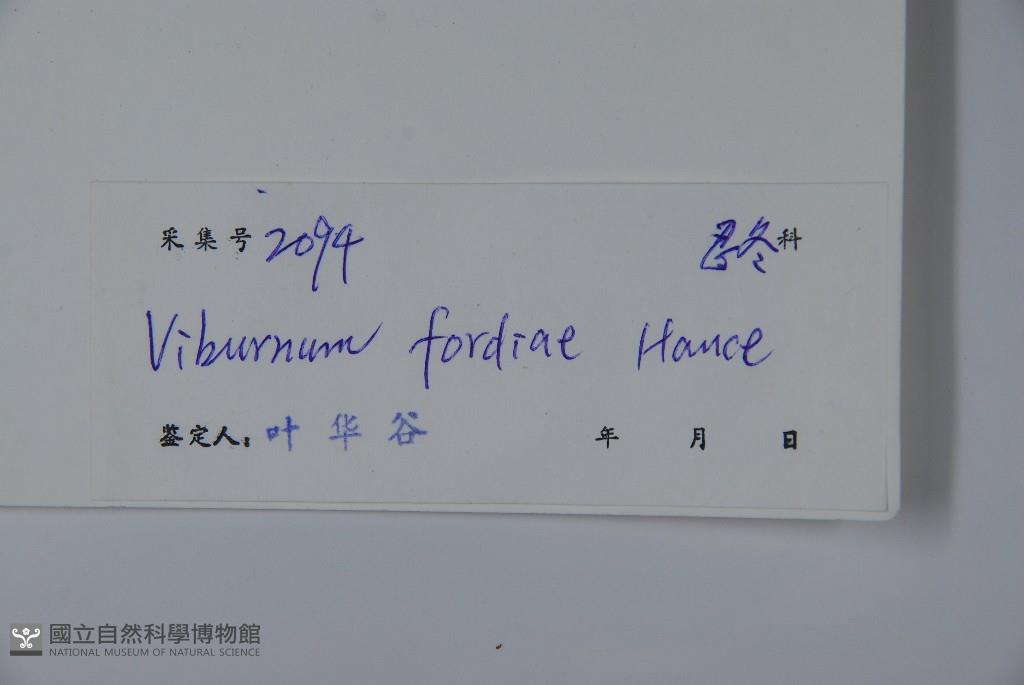 采集号 2094 忍冬科
Viburnum fordiae Hance
鉴定人: 叶华谷 年 月 日
國立自然科學博物館
NATIONAL MUSEUM OF NATURAL SCIENCE